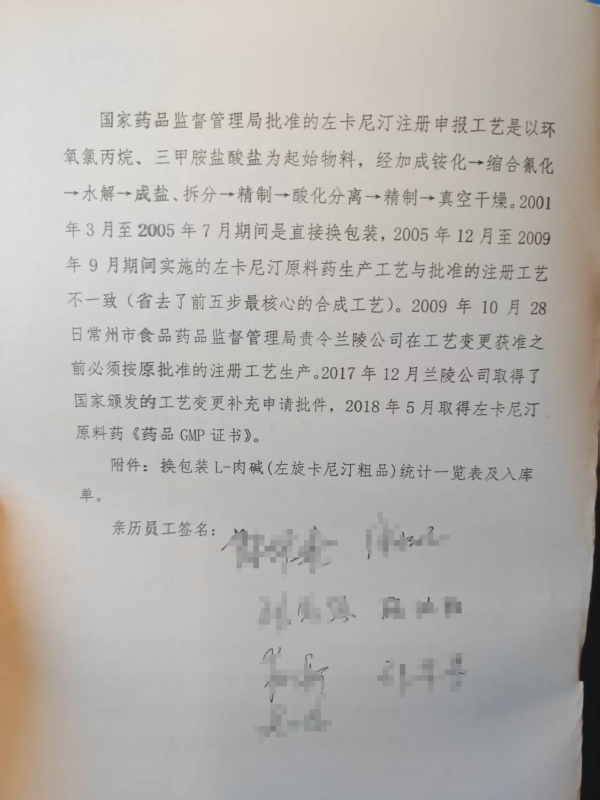 国家药品监督管理局批准的左卡尼汀注册申报工艺是以环
氧氯丙烷、三甲胺盐酸盐为起始物料，经加成铵化→缩合氰化
→水解→成盐、拆分→精制→酸化分离→精制→真空干燥。2001
年3月至2005年7月期间是直接换包装，2005年12月至2009
年9月期间实施的左卡尼汀原料药生产工艺与批准的注册工艺
不一致（省去了前五步最核心的合成工艺）。2009年10月28
日常州市食品药品监督管理局责令兰陵公司在工艺变更获准之
前必须按原批准的注册工艺生产。2017年12月兰陵公司取得了
国家颁发的工艺变更补充申请批件，2018年5月取得左卡尼汀
原料药《药品GMP证书》。
附件：换包装L-肉碱(左旋卡尼汀粗品)统计一览表及入库
单。
亲历员工签名：